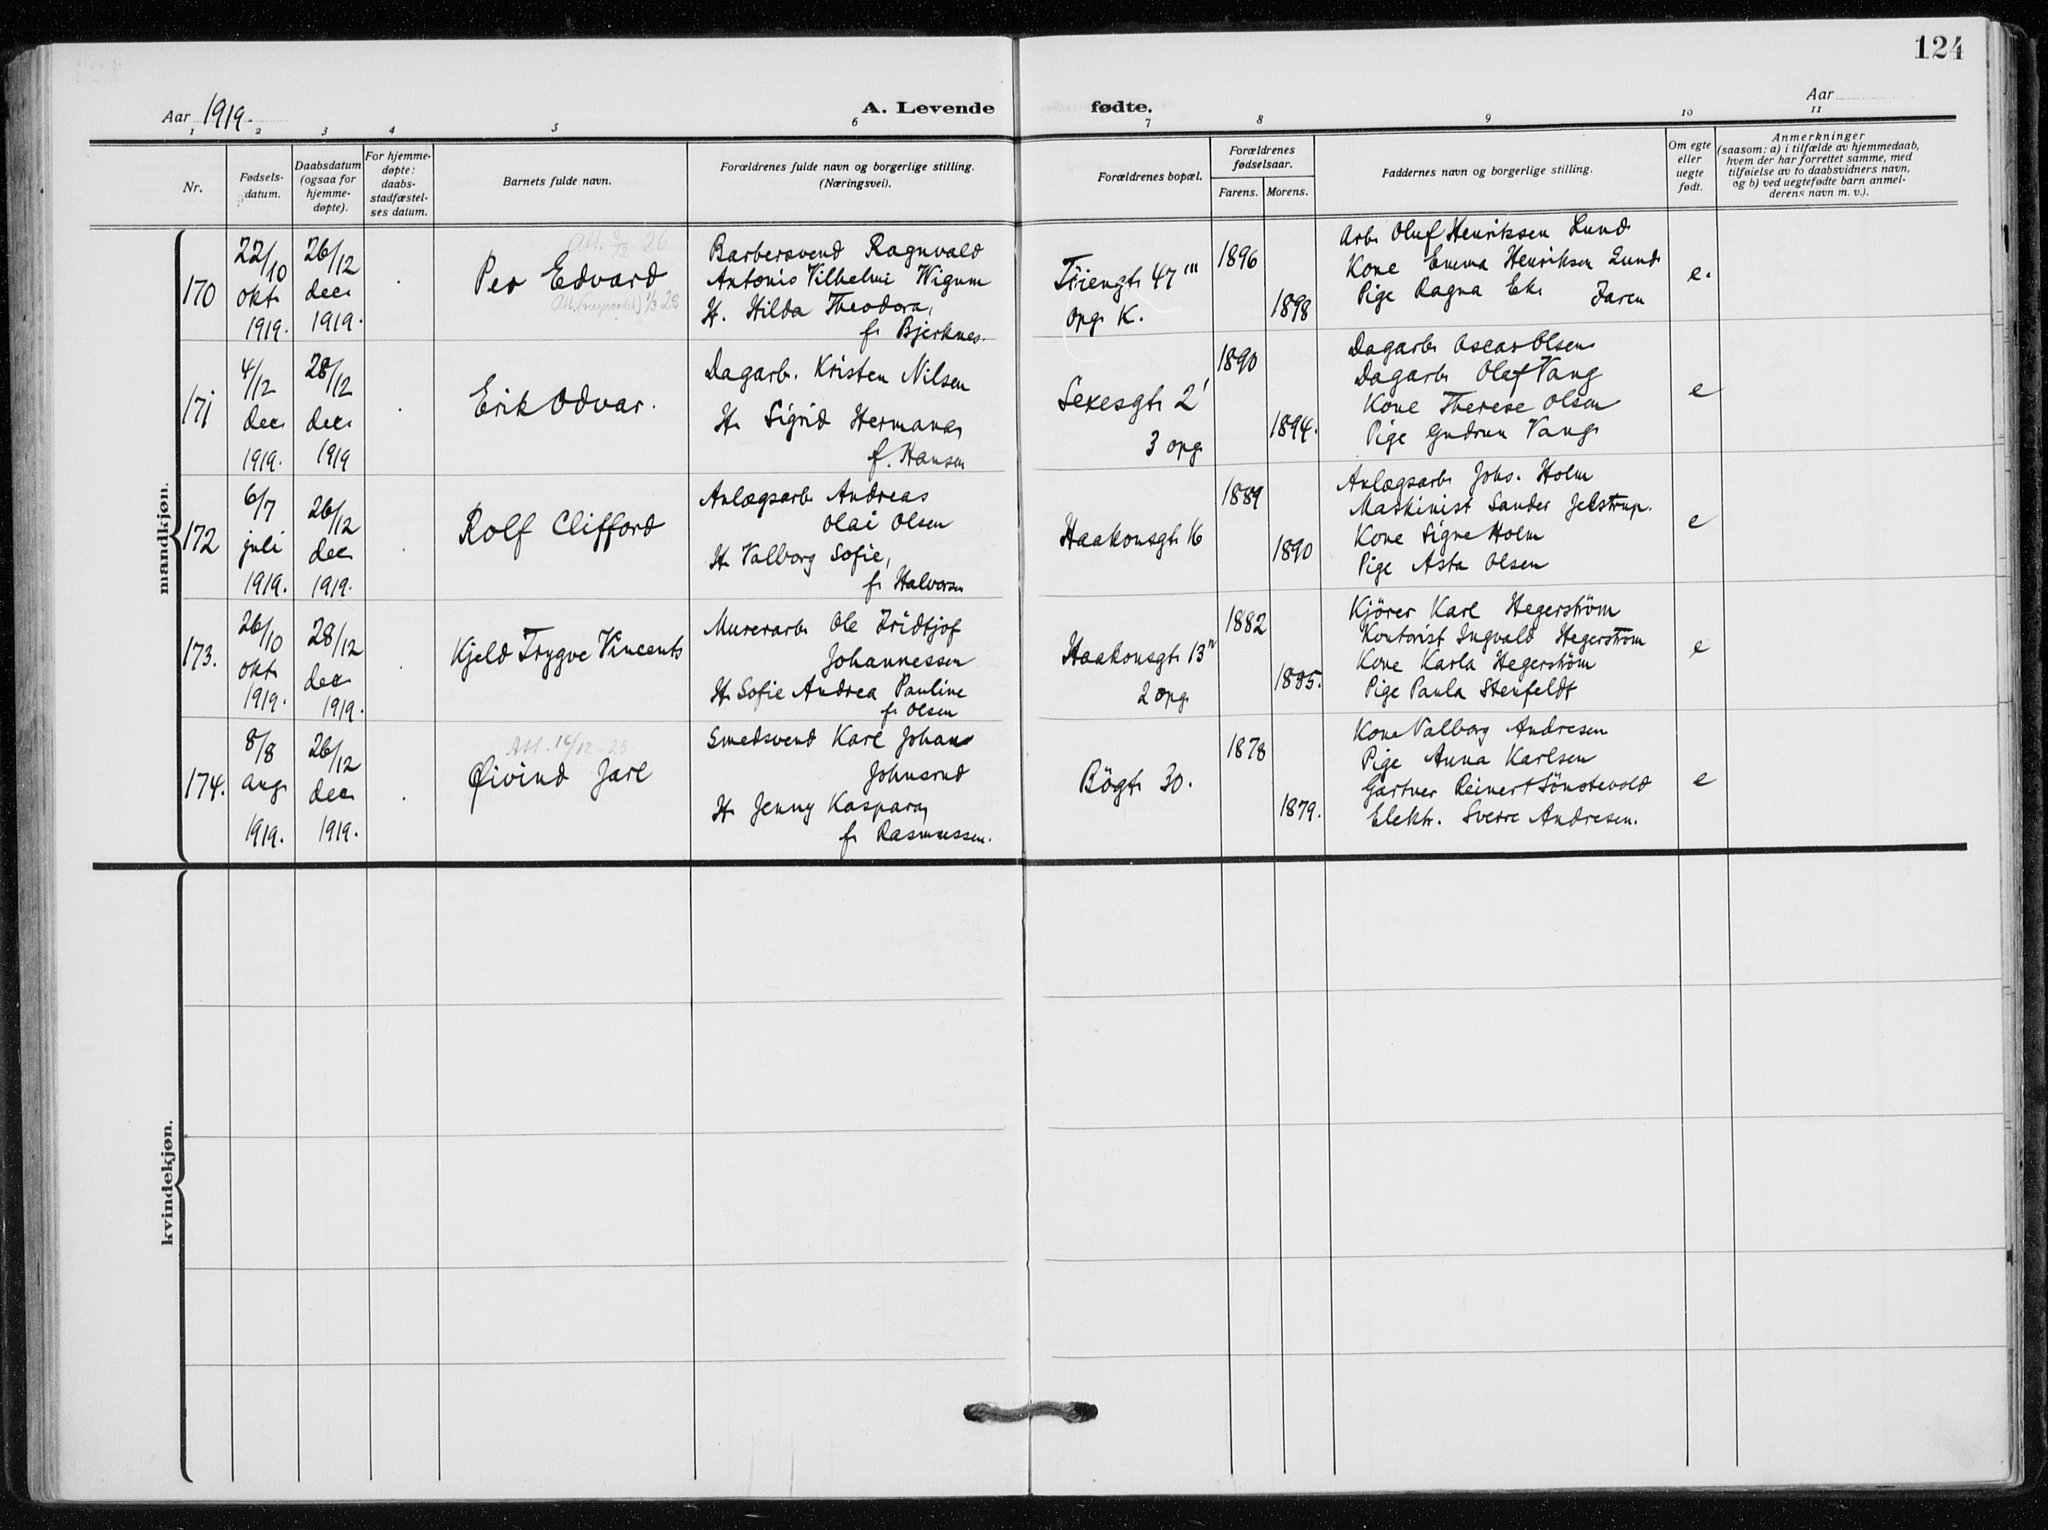 124
Aar 1919.
A. Levende fødte.
Aar
1 2 3 4 5 6 7 8 9 10 11
Nr.
Fødsels-
datum.
Daabsdatum
(ogsaa for
hjemme-
døpte).
For hjemme-
døpte:
daabs-
stadfæstel-
ses datum.
Barnets fulde navn.
Forældrenes fulde navn og borgerlige stilling.
(Næringsvei).
Forældrenes bopæl.
Forældrenes
fødselsaar.
Farens. Morens.
Faddernes navn og borgerlige stilling.
Om egte
eller
uegte
født.
Anmerkninger
(saasom: a) i tilfælde av hjemmedaab,
hvem der har forrettet samme, med
tilføielse av to daabsvidners navn,
og b) ved uegtefødte barn anmel-
derens navn m. v.).
mandkjøn.
170
22/10
okt.
1919.
26/12
dec.
1919.
Att. 2/12 26
Per Edvard
1/3 28
Barbersvend Ragnvald
Antonio Vilhelm Wigum
H. Hilda Theodora,
f. Bjerknes.
47'''
opg. K.
1896
1898
Arb. Oluf Henriksen Lund
Kone Emma Henriksen Lund
Pige Ragna Ek. Jaren
e.
171
4/12
dec.
1919.
28/12
dec.
1919
Erik Odvar.
Dagarb. Kristen Nilsen
H. Sigrid Hermana,
f. Hansen
Sexesgt. 2'
3 opg.
1890
1894.
Dagarb. Oscar Olsen
Dagarb. Olef Vang
Kone Therese Olsen
Pige Gudrun Vang.
e
172
6/7
juli
1919.
26/12
dec.
1919.
Rolf Clifford
Anlægsarb. Andreas
Olai Olsen
H. Valborg Sofie,
f. Halvorsen
Haakonsgt. 16
1889
1890
Anlægsarb. Johs. Holm
Maskinist Sander Jelstrup.
Kone Signe Holm
Pige Asta Olsen
e
173.
26/10
okt.
1919.
28/12
dec.
1919.
Kjeld Trygve Vincents
Murerarb. Ole Fridtjof
Johannessen
H. Sofie Andrea Pauline
f. Olsen
Haakonsgt. 13''
2 opg.
1882
1885.
Kjörer Karl Hegerström
Kontorist Ingvald Hegerström
Kone Karla Hegerström
Pige Paula Stenfeldt
e
174.
8/8
aug.
1919.
26/12
dec.
1919.
Att. 16/12-25.
Øivind Jarl
Smedsvend Karl Johan
Johnsrud
H. Jenny Kaspara,
f. Rasmussen.
Bögt. 30.
1878
1879.
Kone Valborg Andresen
Pige Anna Karlsen
Gartner Reinert Sönstevold
Elektr. Sverre Andresen.
e
kvindekjøn.